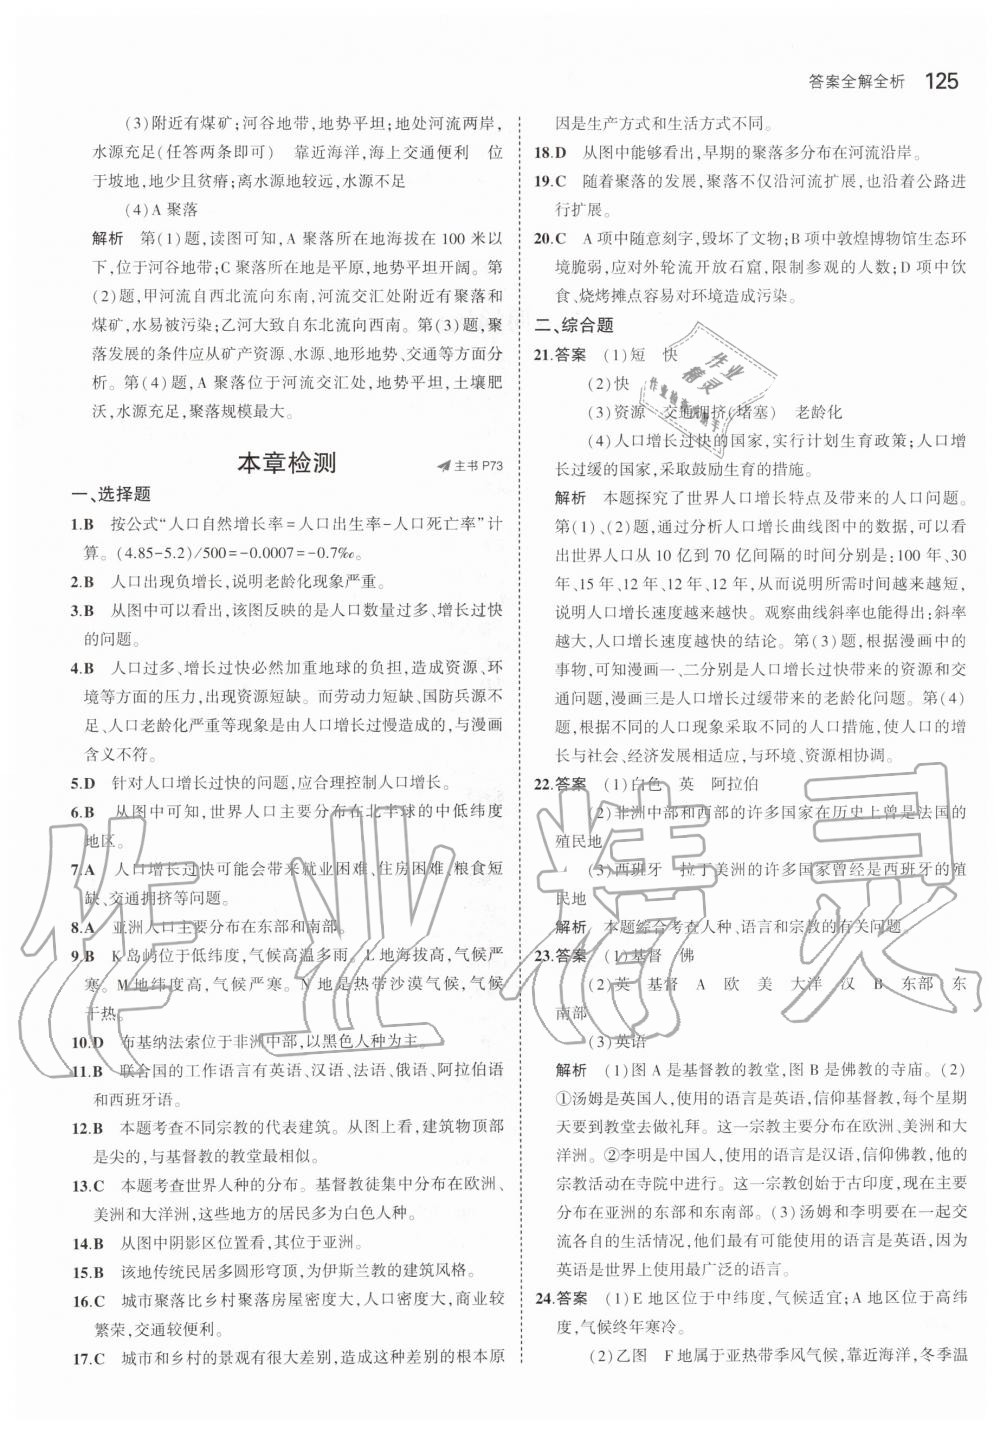 答案全解全析 125
(3)附近有煤矿;河谷地带,地势平坦;地处河流两岸,
水源充足(任答两条即可) 靠近海洋,海上交通便利 位
于坡地,地少且贫瘠;离水源地较远,水源不足
(4)A 聚落
解析 第(1)题,读图可知,A 聚落所在地海拔在 100 米以
下,位于河谷地带;C 聚落所在地是平原,地势平坦开阔。第
(2)题,甲河流自西北流向东南,河流交汇处附近有聚落和
煤矿,水易被污染;乙河大致自东北流向西南。第(3)题,聚
落发展的条件应从矿产资源、水源、地形地势、交通等方面分
析。第(4)题,A 聚落位于河流交汇处,地势平坦,土壤肥
沃,水源充足,聚落规模最大。
本章检测
主书 P73
一、选择题
1.B 按公式“人口自然增长率=人口出生率-人口死亡率”计
算。(4.85-5.2)/500=-0.0007=-0.7‰。
2.B 人口出现负增长,说明老龄化现象严重。
3.B 从图中可以看出,该图反映的是人口数量过多、增长过快
的问题。
4.B 人口过多、增长过快必然加重地球的负担,造成资源、环
境等方面的压力,出现资源短缺。而劳动力短缺、国防兵源不
足、人口老龄化严重等现象是由人口增长过慢造成的,与漫画
含义不符。
5.D 针对人口增长过快的问题,应合理控制人口增长。
6.B 从图中可知,世界人口主要分布在北半球的中低纬度
地区。
7.A 人口增长过快可能会带来就业困难、住房困难、粮食短
缺、交通拥挤等问题。
8.A 亚洲人口主要分布在东部和南部。
9.B K 岛屿位于低纬度,气候高温多雨。L 地海拔高,气候严
寒。M 地纬度高,气候严寒。N 地是热带沙漠气候,气候
干热。
10.D 布基纳法索位于非洲中部,以黑色人种为主。
11.B 联合国的工作语言有英语、汉语、法语、俄语、阿拉伯语
和西班牙语。
12.B 本题考查不同宗教的代表建筑。从图上看,建筑物顶部
是尖的,与基督教的教堂最相似。
13.C 本题考查世界人种的分布。基督教徒集中分布在欧洲、
美洲和大洋洲,这些地方的居民多为白色人种。
14.B 从图中阴影区位置看,其位于亚洲。
15.B 该地传统民居多圆形穹顶,为伊斯兰教的建筑风格。
16.C 城市聚落比乡村聚落房屋密度大,人口密度大,商业较
繁荣,交通较便利。
17.C 城市和乡村的景观有很大差别,造成这种差别的根本原
因是生产方式和生活方式不同。
18.D 从图中能够看出,早期的聚落多分布在河流沿岸。
19.C 随着聚落的发展,聚落不仅沿河流扩展,也沿着公路进
行扩展。
20.C A 项中随意刻字,毁坏了文物;B 项中敦煌博物馆生态环
境脆弱,应对外轮流开放石窟,限制参观的人数;D 项中饮
食、烧烤摊点容易对环境造成污染。
二、综合题
21.答案 (1)短 快
(2)快
(3)资源 交通拥挤(堵塞) 老龄化
(4)人口增长过快的国家,实行计划生育政策;人口增
长过缓的国家,采取鼓励生育的措施。
解析 本题探究了世界人口增长特点及带来的人口问题。
第(1)、(2)题,通过分析人口增长曲线图中的数据,可以看
出世界人口从 10 亿到 70 亿间隔的时间分别是:100 年、30
年、15 年、12 年、12 年、12 年,从而说明所需时间越来越短,
说明人口增长速度越来越快。观察曲线斜率也能得出:斜率
越大,人口增长速度越快的结论。第(3)题,根据漫画中的
事物,可知漫画一、二分别是人口增长过快带来的资源和交
通问题,漫画三是人口增长过缓带来的老龄化问题。第(4)
题,根据不同的人口现象采取不同的人口措施,使人口的增
长与社会、经济发展相适应,与环境、资源相协调。
22.答案 (1)白色 英 阿拉伯
(2)非洲中部和西部的许多国家在历史上曾是法国的
殖民地
(3)西班牙 拉丁美洲的许多国家曾经是西班牙的殖
民地
解析 本题综合考查人种、语言和宗教的有关问题。
23.答案 (1)基督 佛
(2)英 基督 A 欧 美 大洋 汉 B 东部 东
南部
(3)英语
解析 (1)图 A 是基督教的教堂,图 B 是佛教的寺庙。(2)
①汤姆是英国人,使用的语言是英语,信仰基督教,每个星期
天要到教堂去做礼拜。这一宗教主要分布在欧洲、美洲和大
洋洲。②李明是中国人,使用的语言是汉语,信仰佛教,他的
宗教活动在寺院中进行。这一宗教创始于古印度,现在主要
分布在亚洲的东部和东南部。(3)汤姆和李明要在一起交
流各自的生活情况,他们最有可能使用的语言是英语,因为
英语是世界上使用最广泛的语言。
24.答案 (1)E 地区位于中纬度,气候适宜;A 地区位于高纬
度,气候终年寒冷。
(2)乙图 F 地属于亚热带季风气候,靠近海洋,冬季温
作业精灵
作业精灵